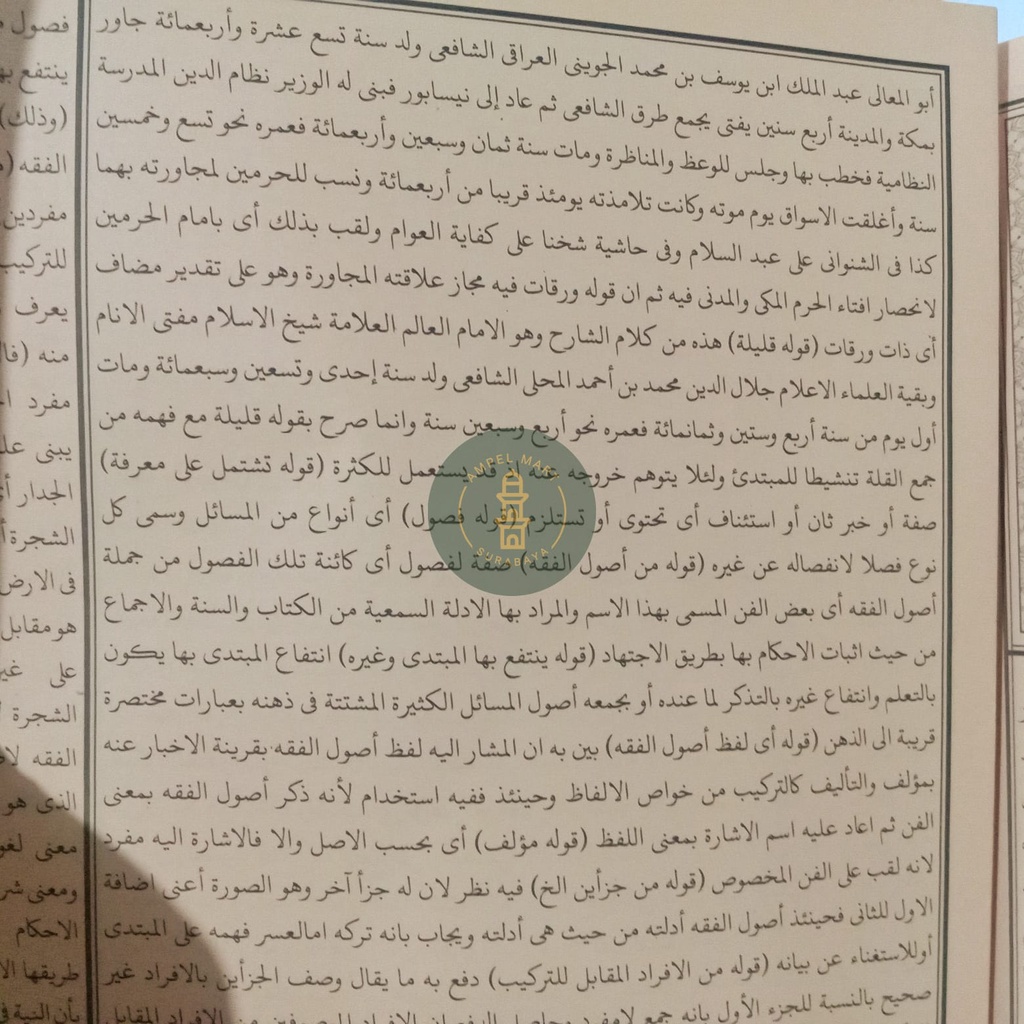 أبو المعالى عبد الملك ابن يوسف بن محمد الجوينى العراقى الشافعى ولد سنة تسع عشرة وأربعمائة جاور
بمكة والمدينة أربع سنين يفتى يجمع طرق الشافعى ثم عاد إلى نيسابور فبنى له الوزير نظام الدين المدرسة
النظامية فخطب بها وجلس للوعظ والمناظرة ومات سنة ثمان وسبعين وأربعمائة فعمره نحو تسع وخمسين
سنة وأغلقت الاسواق يوم موته وكانت تلامذته يومئذ قريبا من أربعمائة ونسب للحرمين لمجاورته بهما
كذا فى الشنوانى على عبد السلام وفى حاشية شخنا على كفاية العوام ولقب بذلك أى بامام الحرمين
لانحصار افتاء الحرم المكى والمدنى فيه ثم ان قوله ورقات فيه مجاز علاقته المجاورة وهو على تقدير مضاف
أى ذات ورقات (قوله قليلة) هذه من كلام الشارح وهو الامام العالم العلامة شيخ الاسلام مفتى الانام
وبقية العلماء الاعلام جلال الدين محمد بن أحمد المحلى الشافعى ولد سنة إحدى وتسعين وسبعمائة ومات
أول يوم من سنة أربع وستين وثمانمائة فعمره نحو أربع وسبعين سنة وانما صرح بقوله قليلة مع فهمه من
جمع القلة تنشيطا للمبتدئ ولئلا يتوهم خروجه عنه اذ قد يستعمل للكثرة (قوله تشتمل على معرفة)
صفة أو خبر ثان أو استئناف أى تحتوى أو تستلزم (قوله فصول) أى أنواع من المسائل وسمى كل
نوع فصلا لانفصاله عن غيره (قوله من أصول الفقه) صفة لفصول أى كائنة تلك الفصول من جملة
أصول الفقه أى بعض الفن المسمى بهذا الاسم والمراد بها الادلة السمعية من الكتاب والسنة والاجماع
من حيث اثبات الاحكام بها بطريق الاجتهاد (قوله ينتفع بها المبتدى وغيره) انتفاع المبتدى بها يكون
بالتعلم وانتفاع غيره بالتذكر لما عنده أو بجمعه أصول المسائل الكثيرة المشتتة فى ذهنه بعبارات مختصرة
قريبة الى الذهن (قوله أى لفظ أصول الفقه) بين به ان المشار اليه لفظ أصول الفقه بقرينة الاخبار عنه
بمؤلف والتأليف كالتركيب من خواص الالفاظ وحينئذ ففيه استخدام لأنه ذكر أصول الفقه بمعنى
الفن ثم اعاد عليه اسم الاشارة بمعنى اللفظ (قوله مؤلف) أى بحسب الاصل والا فالاشارة اليه مفرد
لانه لقب على الفن المخصوص (قوله من جزأين الخ) فيه نظر لان له جزأ آخر وهو الصورة أعنى اضافة
الاول للثانى فحينئذ أصول الفقه أدلته من حيث هى أدلته ويجاب بانه تركه امالعسر فهمه على المبتدى
أوللاستغناء عن بيانه (قوله من الافراد المقابل للتركيب) دفع به ما يقال وصف الجزأين بالافراد غير
صحيح بالنسبة للجزء الأول بانه جمع لامفرد وحاصل الدفع ان الافراد من الافراد المقابل
فصول
ينتفع
(وذلك)
الفقه
مفردين
للتركيب
يعرف
منه
مفرد
يبنى
الجدار
الشجرة
فى الارض
هو مقابل
على
الشجرة
الفقه
الذى هو
معنى
ومعنى
الاحكام
طريقها
بأن النية
AMPEL MART
SURABAYA